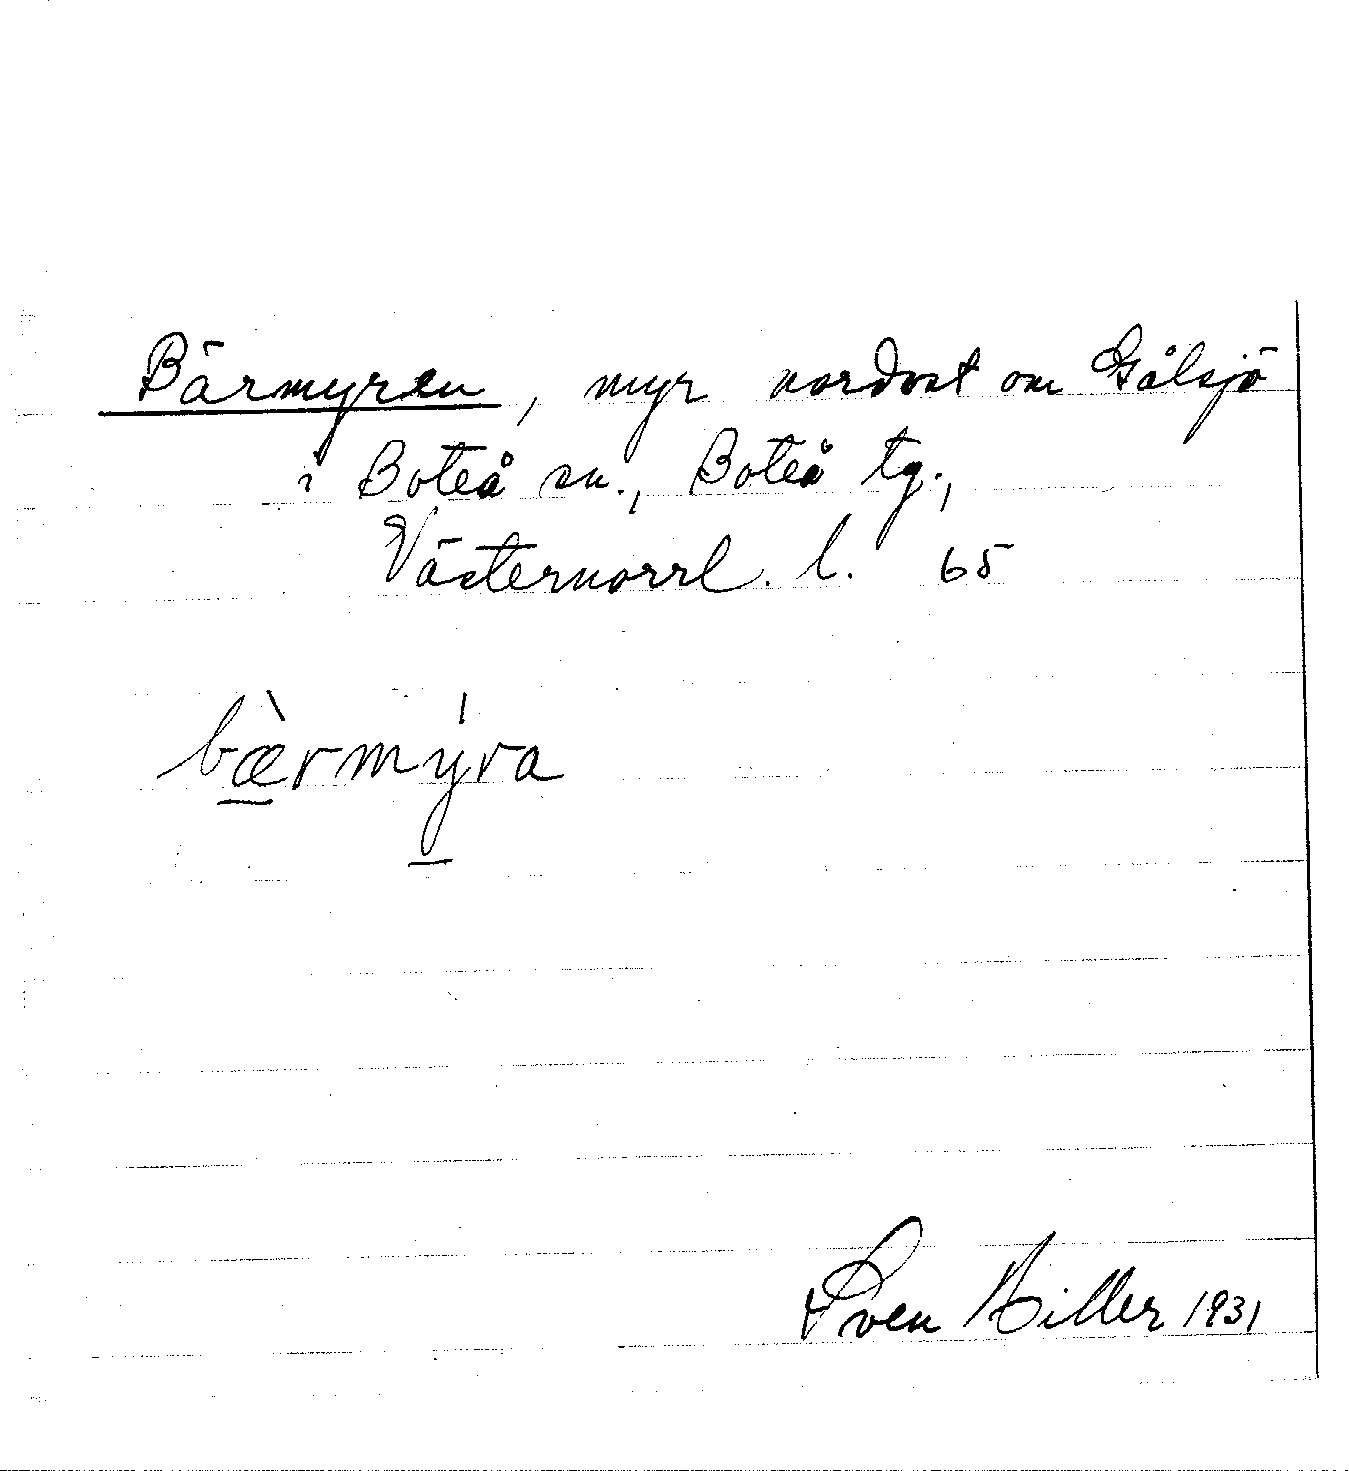 Bärmyren, myr nordost om Gålsjö
i Boteå sn., Boteå tg.,
Västernorrl. l. 65
bæ̀rmýra
Sven Hiller 1931